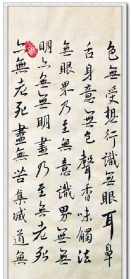 色無受想行識無眼耳鼻
舌身意無色聲香味觸法
無眼界乃至無意識界無無
明亦無無明盡乃至無老死
亦無老死盡無苦集滅道無